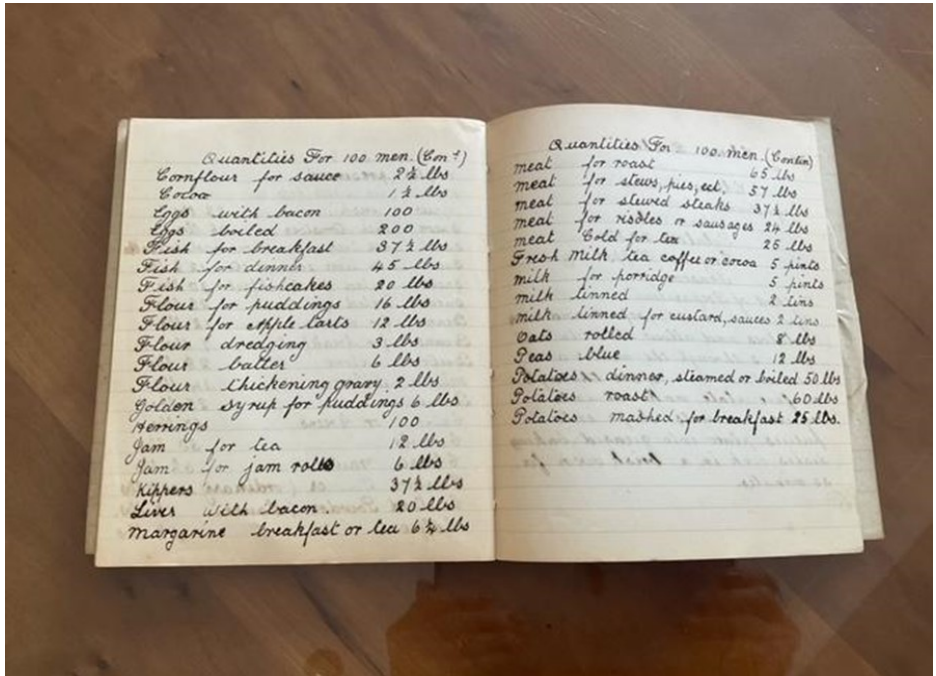 Quantities For 100 men. (Con^t)
Cornflour for sauce 2½ lbs
Cocoa 1½ lbs
Eggs with bacon 100
Eggs boiled 200
Fish for breakfast 37½ lbs
Fish for dinner 45 lbs
Fish for fishcakes 20 lbs
Flour for puddings 16 lbs
Flour for Apple tarts 12 lbs
Flour dredging 3 lbs
Flour batter 6 lbs
Flour thickening gravy 2 lbs
Golden syrup for puddings 6 lbs
Herrings 100
Jam for tea 12 lbs
Jam for jam rolls 6 lbs
Kippers 37½ lbs
Liver with bacon 20 lbs
Margarine breakfast or tea 6¼ lbs
Quantities For 100 men. (Contin)
meat for roast 65 lbs
meat for stews, pies, ect. 57 lbs
meat for stewed steaks 37½ lbs
meat for rissoles or sausages 24 lbs
meat Cold for tea 25 lbs
Fresh milk tea coffee or cocoa 5 pints
milk for porridge 5 pints
milk tinned 2 tins
milk tinned for custard, sauces 2 tins
Oats rolled 8 lbs
Peas blue 12 lbs
Potatoes dinner, steamed or boiled 50 lbs
Potatoes roast 60 lbs
Potatoes mashed for breakfast 25 lbs.